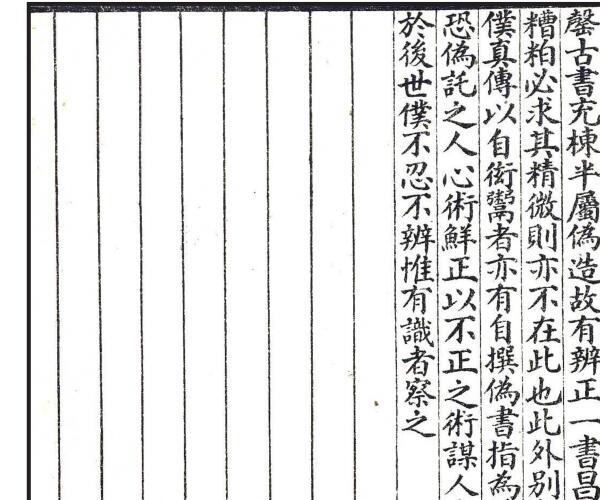 罄古書充棟半屬偽造故有辨正一書昌
糟粕必求其精微則亦不在此也此外別
僕真傳以自衒鬻者亦有自撰偽書指為
恐偽託之人心術鮮正以不正之術謀人
於後世僕不忍不辨惟有識者察之